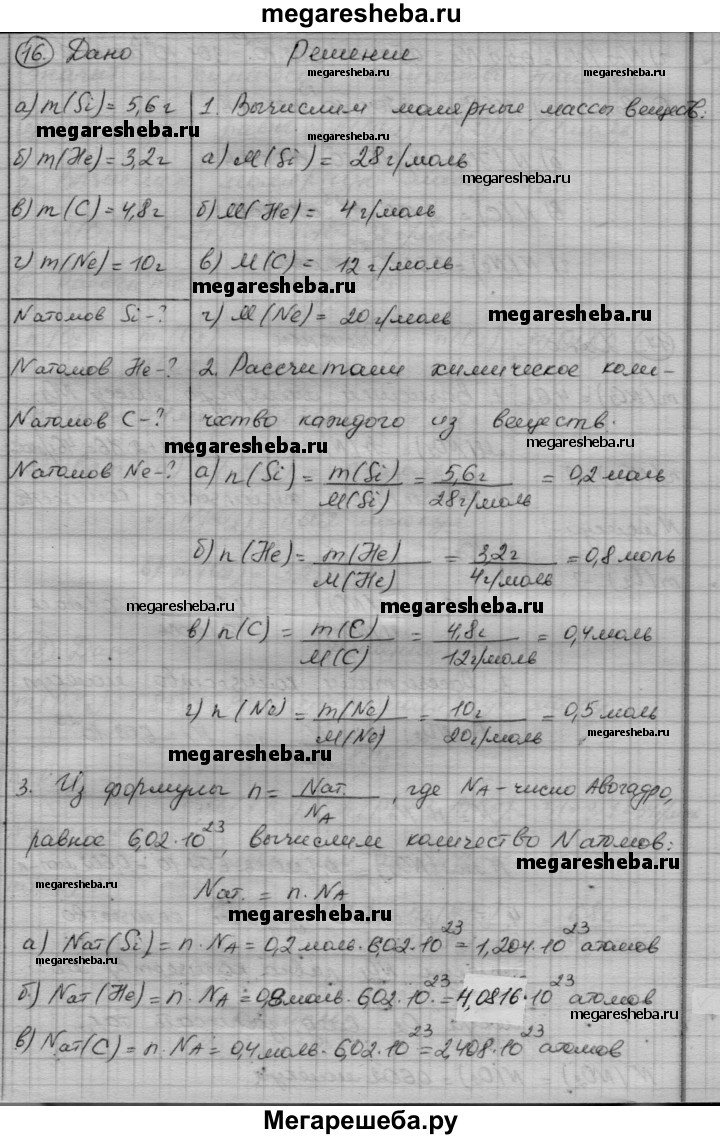 megaresheba.ru
16. Дано Решение
megaresheba.ru megaresheba.ru
а) m(Si) = 5,6 г 1. Вычислим молярные массы веществ:
megaresheba.ru megaresheba.ru
б) m(He) = 3,2 г а) M(Si) = 28 г/моль
megaresheba.ru
в) m(C) = 4,8 г б) M(He) = 4 г/моль
г) m(Ne) = 10 г в) M(C) = 12 г/моль
megaresheba.ru
N атомов Si - ? г) M(Ne) = 20 г/моль megaresheba.ru
N атомов He - ? 2. Рассчитаем химическое коли-
N атомов C - ? чество каждого из веществ.
megaresheba.ru megaresheba.ru
N атомов Ne - ? а) n(Si) = m(Si)/M(Si) = 5,6 г/28 г/моль = 0,2 моль
б) n(He) = m(He)/M(He) = 3,2 г/4 г/моль = 0,8 моль
megaresheba.ru megaresheba.ru
в) n(C) = m(C)/M(C) = 4,8 г/12 г/моль = 0,4 моль
г) n(Ne) = m(Ne)/M(Ne) = 10 г/20 г/моль = 0,5 моль
megaresheba.ru megaresheba.ru
3. Из формулы n = Nат./NA, где NA - число Авогадро,
равное 6,02·10²³, вычислим количество N атомов:
megaresheba.ru
megaresheba.ru
Nат. = n·NA
megaresheba.ru
а) Nат(Si) = n·NA = 0,2 моль·6,02·10²³ = 1,204·10²³ атомов
megaresheba.ru
б) Nат(He) = n·NA = 0,8 моль·6,02·10²³ = 4,0816·10²³ атомов
megaresheba.ru
в) Nат(C) = n·NA = 0,4 моль·6,02·10²³ = 2,408·10²³ атомов
Мегарешеба.ру